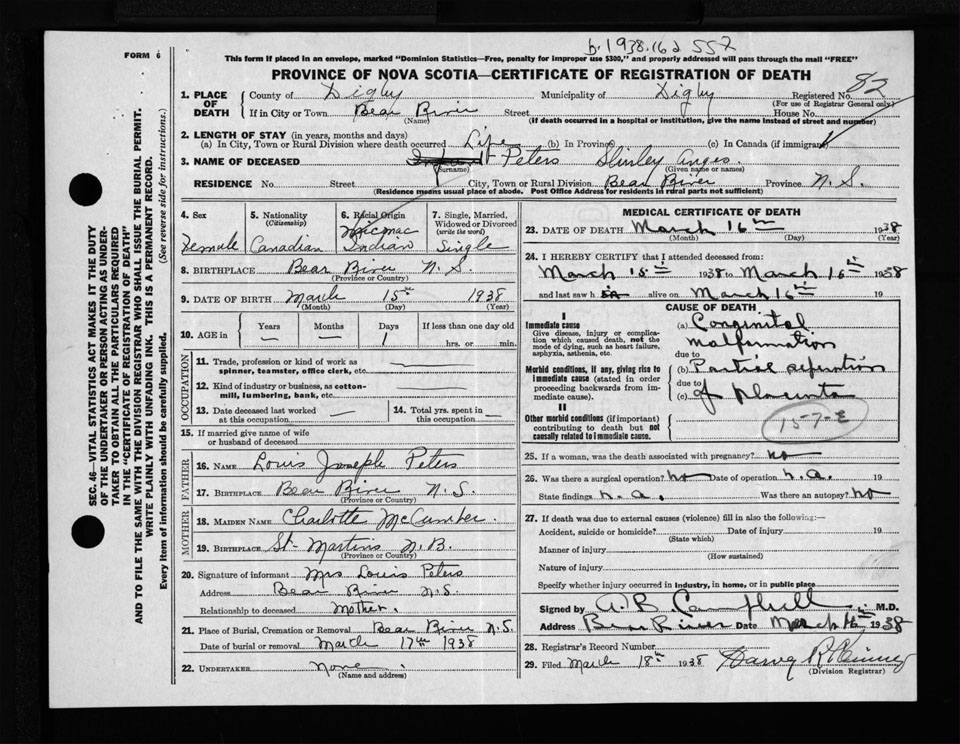 b. 1938. 162 557
FORM 6
This form if placed in an envelope, marked "Dominion Statistics—Free, penalty for improper use $300," and properly addressed will pass through the mail "FREE"
PROVINCE OF NOVA SCOTIA—CERTIFICATE OF REGISTRATION OF DEATH
82
SEC. 46—VITAL STATISTICS ACT MAKES IT THE DUTY
OF THE UNDERTAKER OR PERSON ACTING AS UNDER-
TAKER TO OBTAIN ALL THE PARTICULARS REQUIRED
IN THE "CERTIFICATE OF REGISTRATION OF DEATH"
AND TO FILE THE SAME WITH THE DIVISION REGISTRAR WHO SHALL ISSUE THE BURIAL PERMIT.
WRITE PLAINLY WITH UNFADING INK. THIS IS A PERMANENT RECORD.
Every item of information should be carefully supplied. (See reverse side for instructions.)
1. PLACE OF DEATH
County of Digby Municipality of Digby Registered No.
(For use of Registrar General only)
If in City or Town Bear River Street House No.
(Name) (If death occurred in a hospital or institution, give the name instead of street and number)
2. LENGTH OF STAY (in years, months and days)
(a) In City, Town or Rural Division where death occurred Life (b) In Province (c) In Canada (if immigrant)
3. NAME OF DECEASED Peters Shirley
(Surname) (Given name or names)
RESIDENCE No. Street City, Town or Rural Division Bear River Province N. S.
(Residence means usual place of abode. Post Office Address for residents in rural parts not sufficient)
4. Sex
Female
5. Nationality
(Citizenship)
Canadian
6. Racial Origin
Micmac
Indian
7. Single, Married,
Widowed or Divorced
(write the word)
Single
8. BIRTHPLACE Bear River N. S.
(Province or Country)
9. DATE OF BIRTH March 15th 1938
(Month) (Day) (Year)
10. AGE in Years Months Days If less than one day old
— — 1 hrs. or min.
OCCUPATION
11. Trade, profession or kind of work as
spinner, teamster, office clerk, etc.
12. Kind of industry or business, as cotton-
mill, lumbering, bank, etc.
13. Date deceased last worked
at this occupation —
14. Total yrs. spent in
this occupation —
15. If married give name of wife
or husband of deceased
FATHER
16. NAME Louis Joseph Peters
17. BIRTHPLACE Bear River N. S.
(Province or Country)
MOTHER
18. MAIDEN NAME Charlotte McCumber.
19. BIRTHPLACE St. Martins N. B.
(Province or Country)
20. Signature of informant Mrs Louis Peters
Address Bear River N. S.
Relationship to deceased Mother.
21. Place of Burial, Cremation or Removal Bear River N. S.
Date of burial or removal March 17th 1938
22. UNDERTAKER None.
(Name and address)
MEDICAL CERTIFICATE OF DEATH
23. DATE OF DEATH March 16th 1938
(Month) (Day) (Year)
24. I HEREBY CERTIFY that I attended deceased from:
March 15th 1938 to March 16th 1938
and last saw h alive on March 16th 19
CAUSE OF DEATH
I
Immediate cause
Give disease, injury or complica-
tion which caused death, not the
mode of dying, such as heart failure,
asphyxia, asthenia, etc.
(a) Congenital
Malformation
due to
Morbid conditions, if any, giving rise to
immediate cause (stated in order
proceeding backwards from im-
mediate cause).
(b) Partial separation
due to
(c) of Placenta
II
Other morbid conditions (if important)
contributing to death but not
causally related to immediate cause.
157-E
25. If a woman, was the death associated with pregnancy? no
26. Was there a surgical operation? no Date of operation n. a. 19
State findings n. a. Was there an autopsy? no
27. If death was due to external causes (violence) fill in also the following:—
Accident, suicide or homicide? Date of injury 19
(State which)
Manner of injury
(How sustained)
Nature of injury
Specify whether injury occurred in industry, in home, or in public place
Signed by A. B. Campbell M.D.
Address Bear River Date March 16 1938
28. Registrar's Record Number
29. Filed March 18th 1938 Harvey
(Division Registrar)